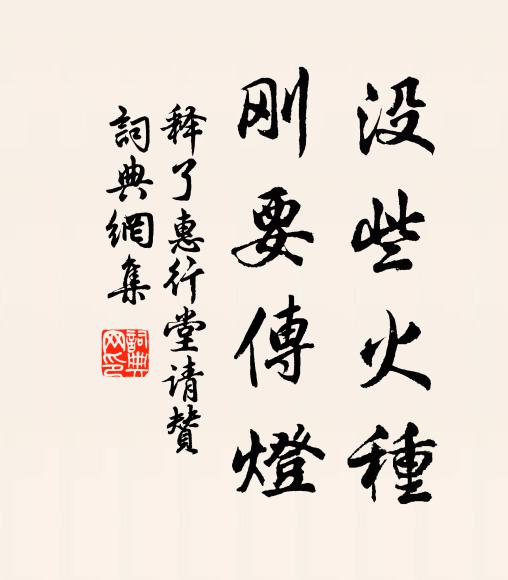 没些火種
刚要傳燈
释了惠行堂请贊
詞典網集
詞典网印